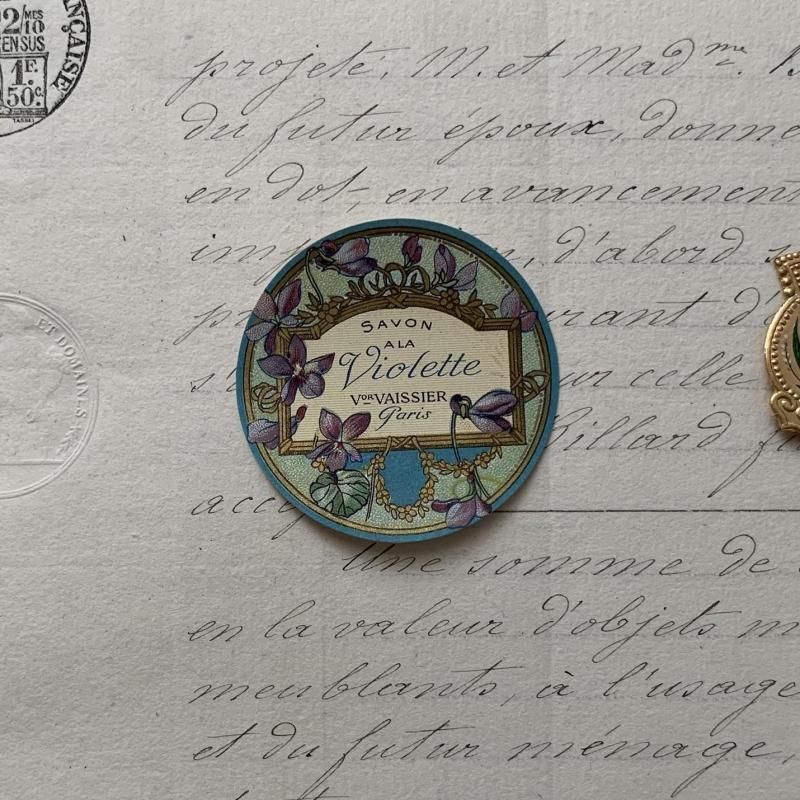 2/MES
10
EN SUS
1F.
50c.
ÇAISE
TASSET
projeté, M. et Mad.me B
du futur époux, donne
en dot, en avancement
d'abord s
rant d'
s' ur celle
illard f
acc
Une somme de
en la valeur d'objets m
meublants, à l'usage
et du futur ménage,
SAVON
A LA
Violette
VOR VAISSIER
Paris
ET DOMAINES